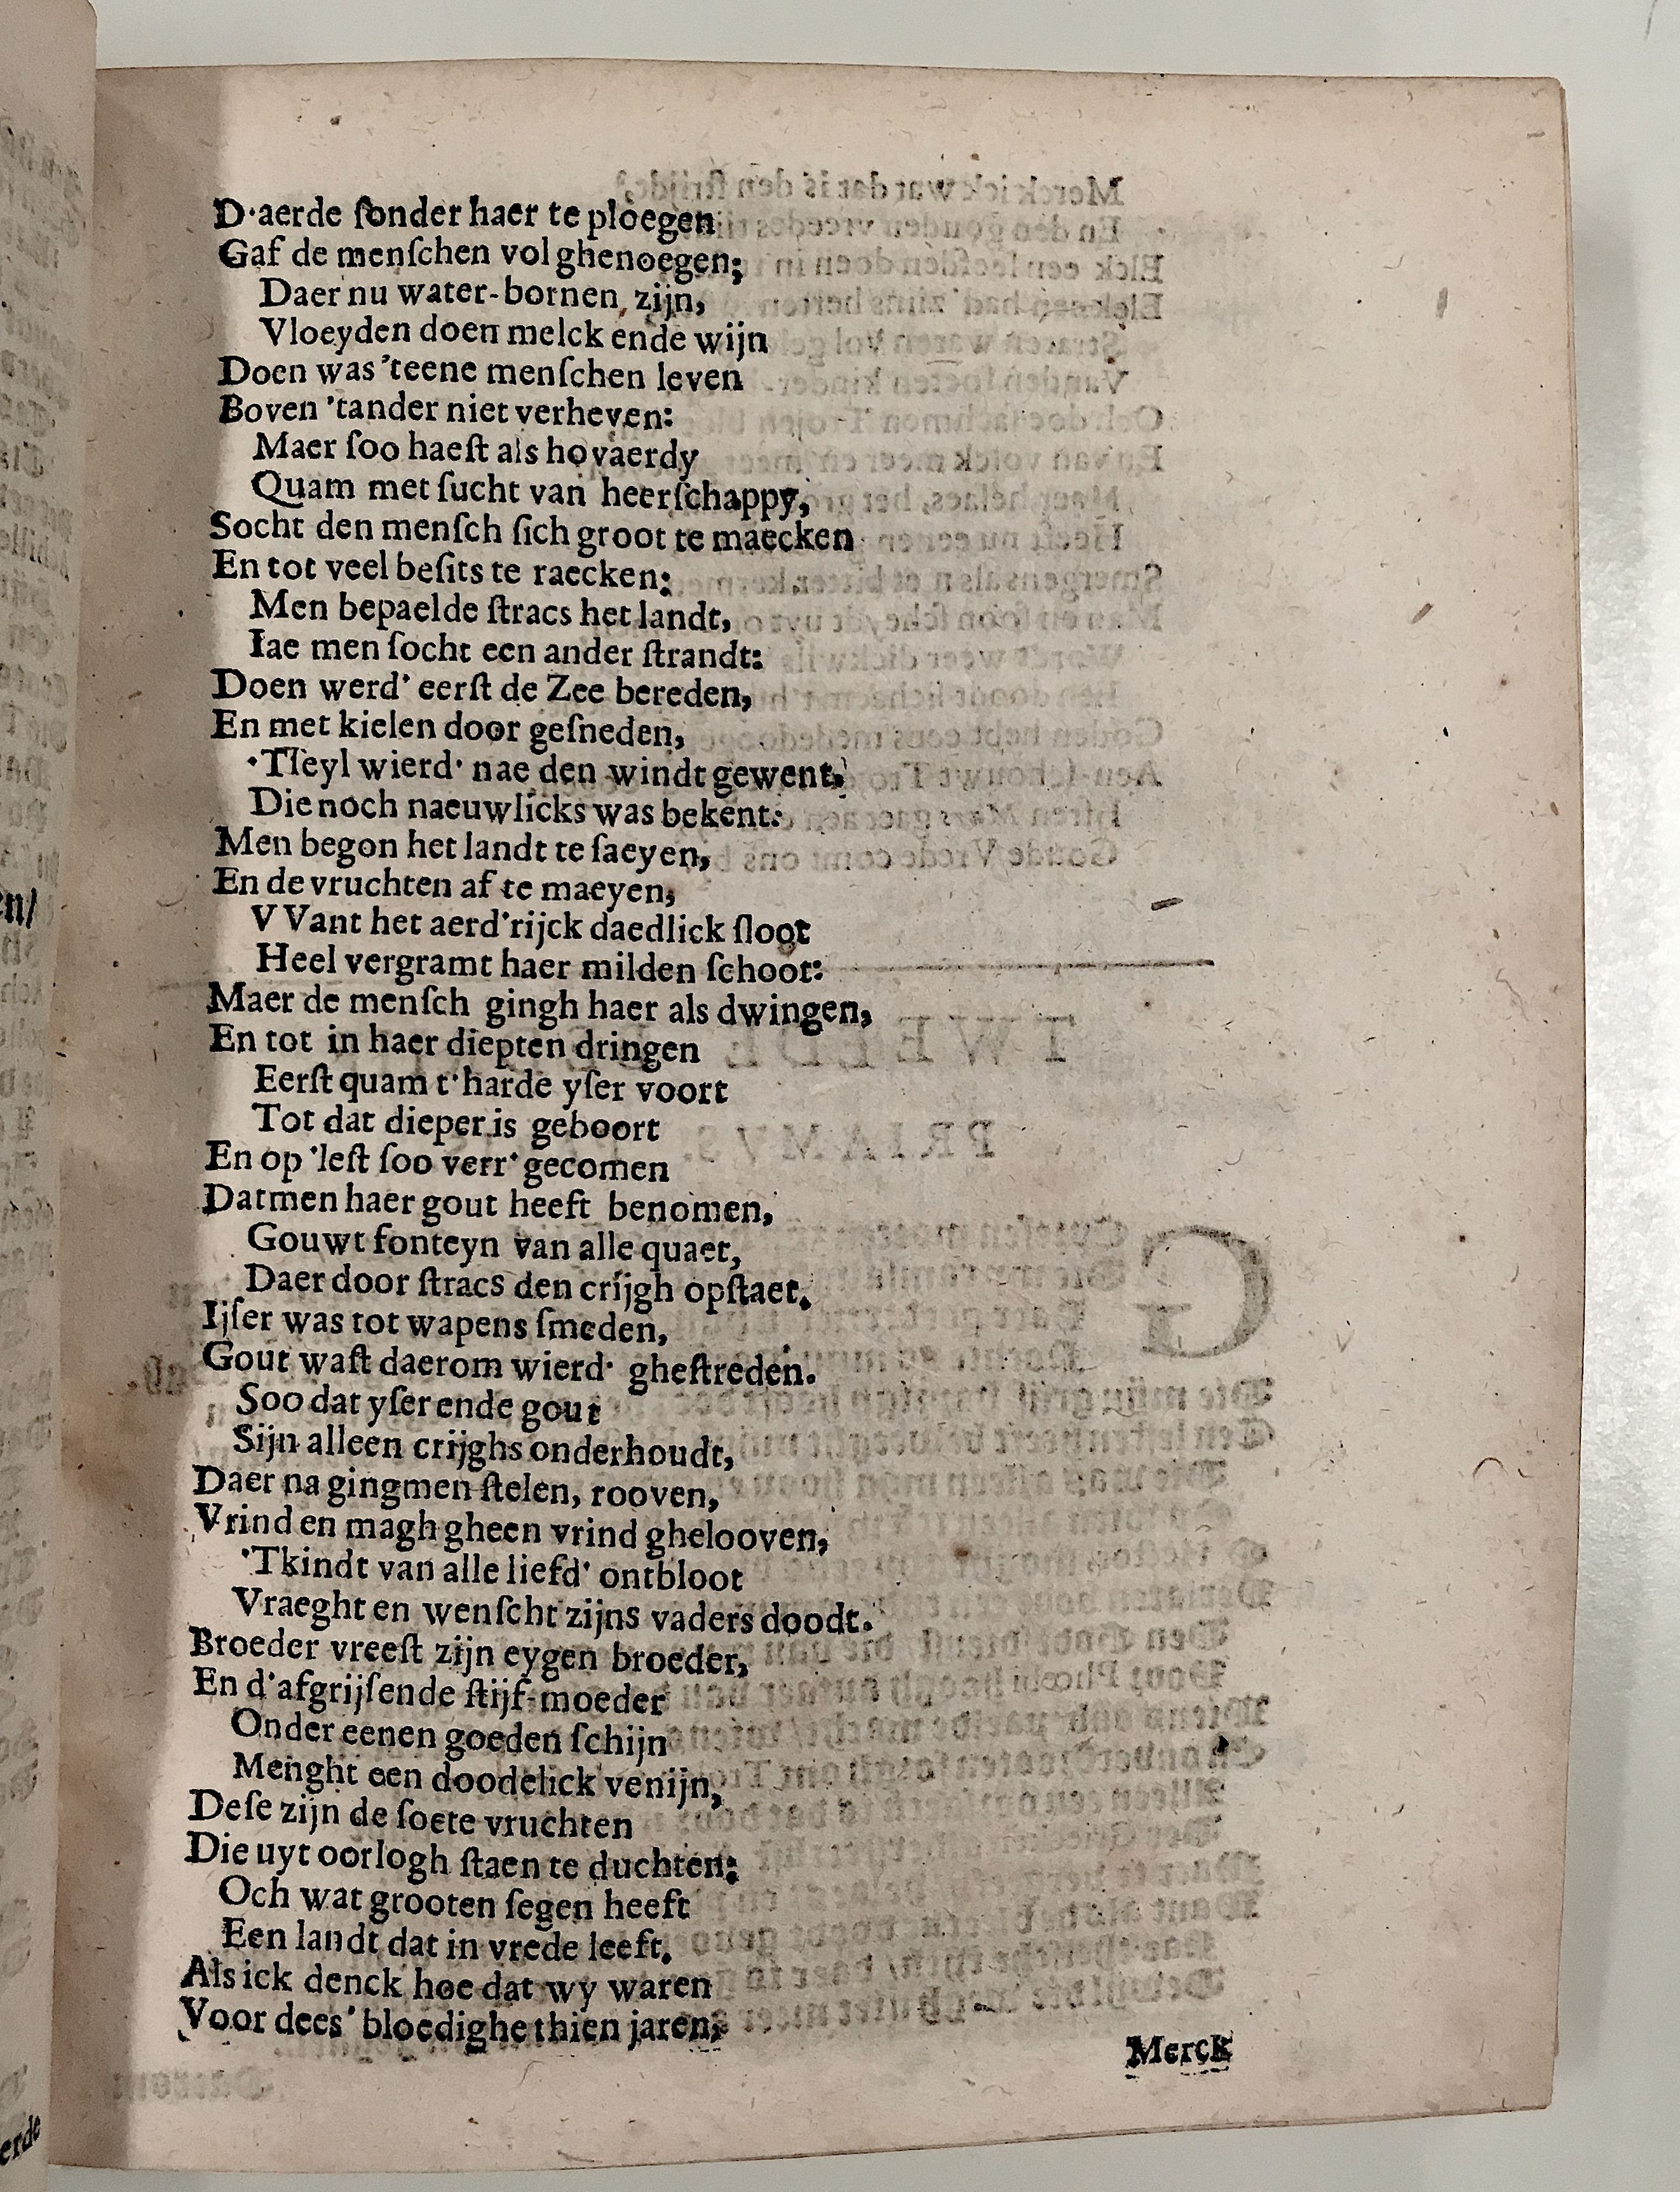 D'aerde ſonder haer te ploegen
Gaf de menſchen vol ghenoegen;
Daer nu water-bornen zijn,
Vloeyden doen melck ende wijn
Doen was 'teene menſchen leven
Boven 'tander niet verheven:
Maer ſoo haeſt als hovaerdy
Quam met ſucht van heerſchappy,
Socht den menſch ſich groot te maecken
En tot veel beſits te raecken:
Men bepaelde ſtracs het landt,
Iae men ſocht een ander ſtrandt:
Doen werd' eerſt de Zee bereden,
En met kielen door geſneden,
'Tſeyl wierd' nae den windt gewent,
Die noch naeuwlicks was bekent:
Men begon het landt te ſaeyen,
En de vruchten af te maeyen,
VVant het aerd'rijck daedlick ſloot
Heel vergramt haer milden ſchoot:
Maer de menſch gingh haer als dwingen,
En tot in haer diepten dringen
Eerſt quam t'harde yſer voort
Tot dat dieper is geboort
En op 'leſt ſoo verr' gecomen
Datmen haer gout heeft benomen,
Gouwt fonteyn van alle quaet,
Daer door ſtracs den crijgh opſtaet.
Ijſer was tot wapens ſmeden,
Gout waſt daerom wierd' gheſtreden.
Soo dat yſer ende gout
Sijn alleen crijghs onderhoudt,
Daer na gingmen ſtelen, rooven,
Vrind en magh gheen vrind ghelooven,
'Tkindt van alle liefd' ontbloot
Vraeght en wenſcht zijns vaders doodt.
Broeder vreeſt zijn eygen broeder,
En d'afgrijſende ſtijf-moeder
Onder eenen goeden ſchijn
Menght een doodelick venijn,
Deſe zijn de ſoete vruchten
Die uyt oorlogh ſtaen te duchten:
Och wat grooten ſegen heeft
Een landt dat in vrede leeft.
Als ick denck hoe dat wy waren
Voor dees' bloedighe thien jaren,
Merck